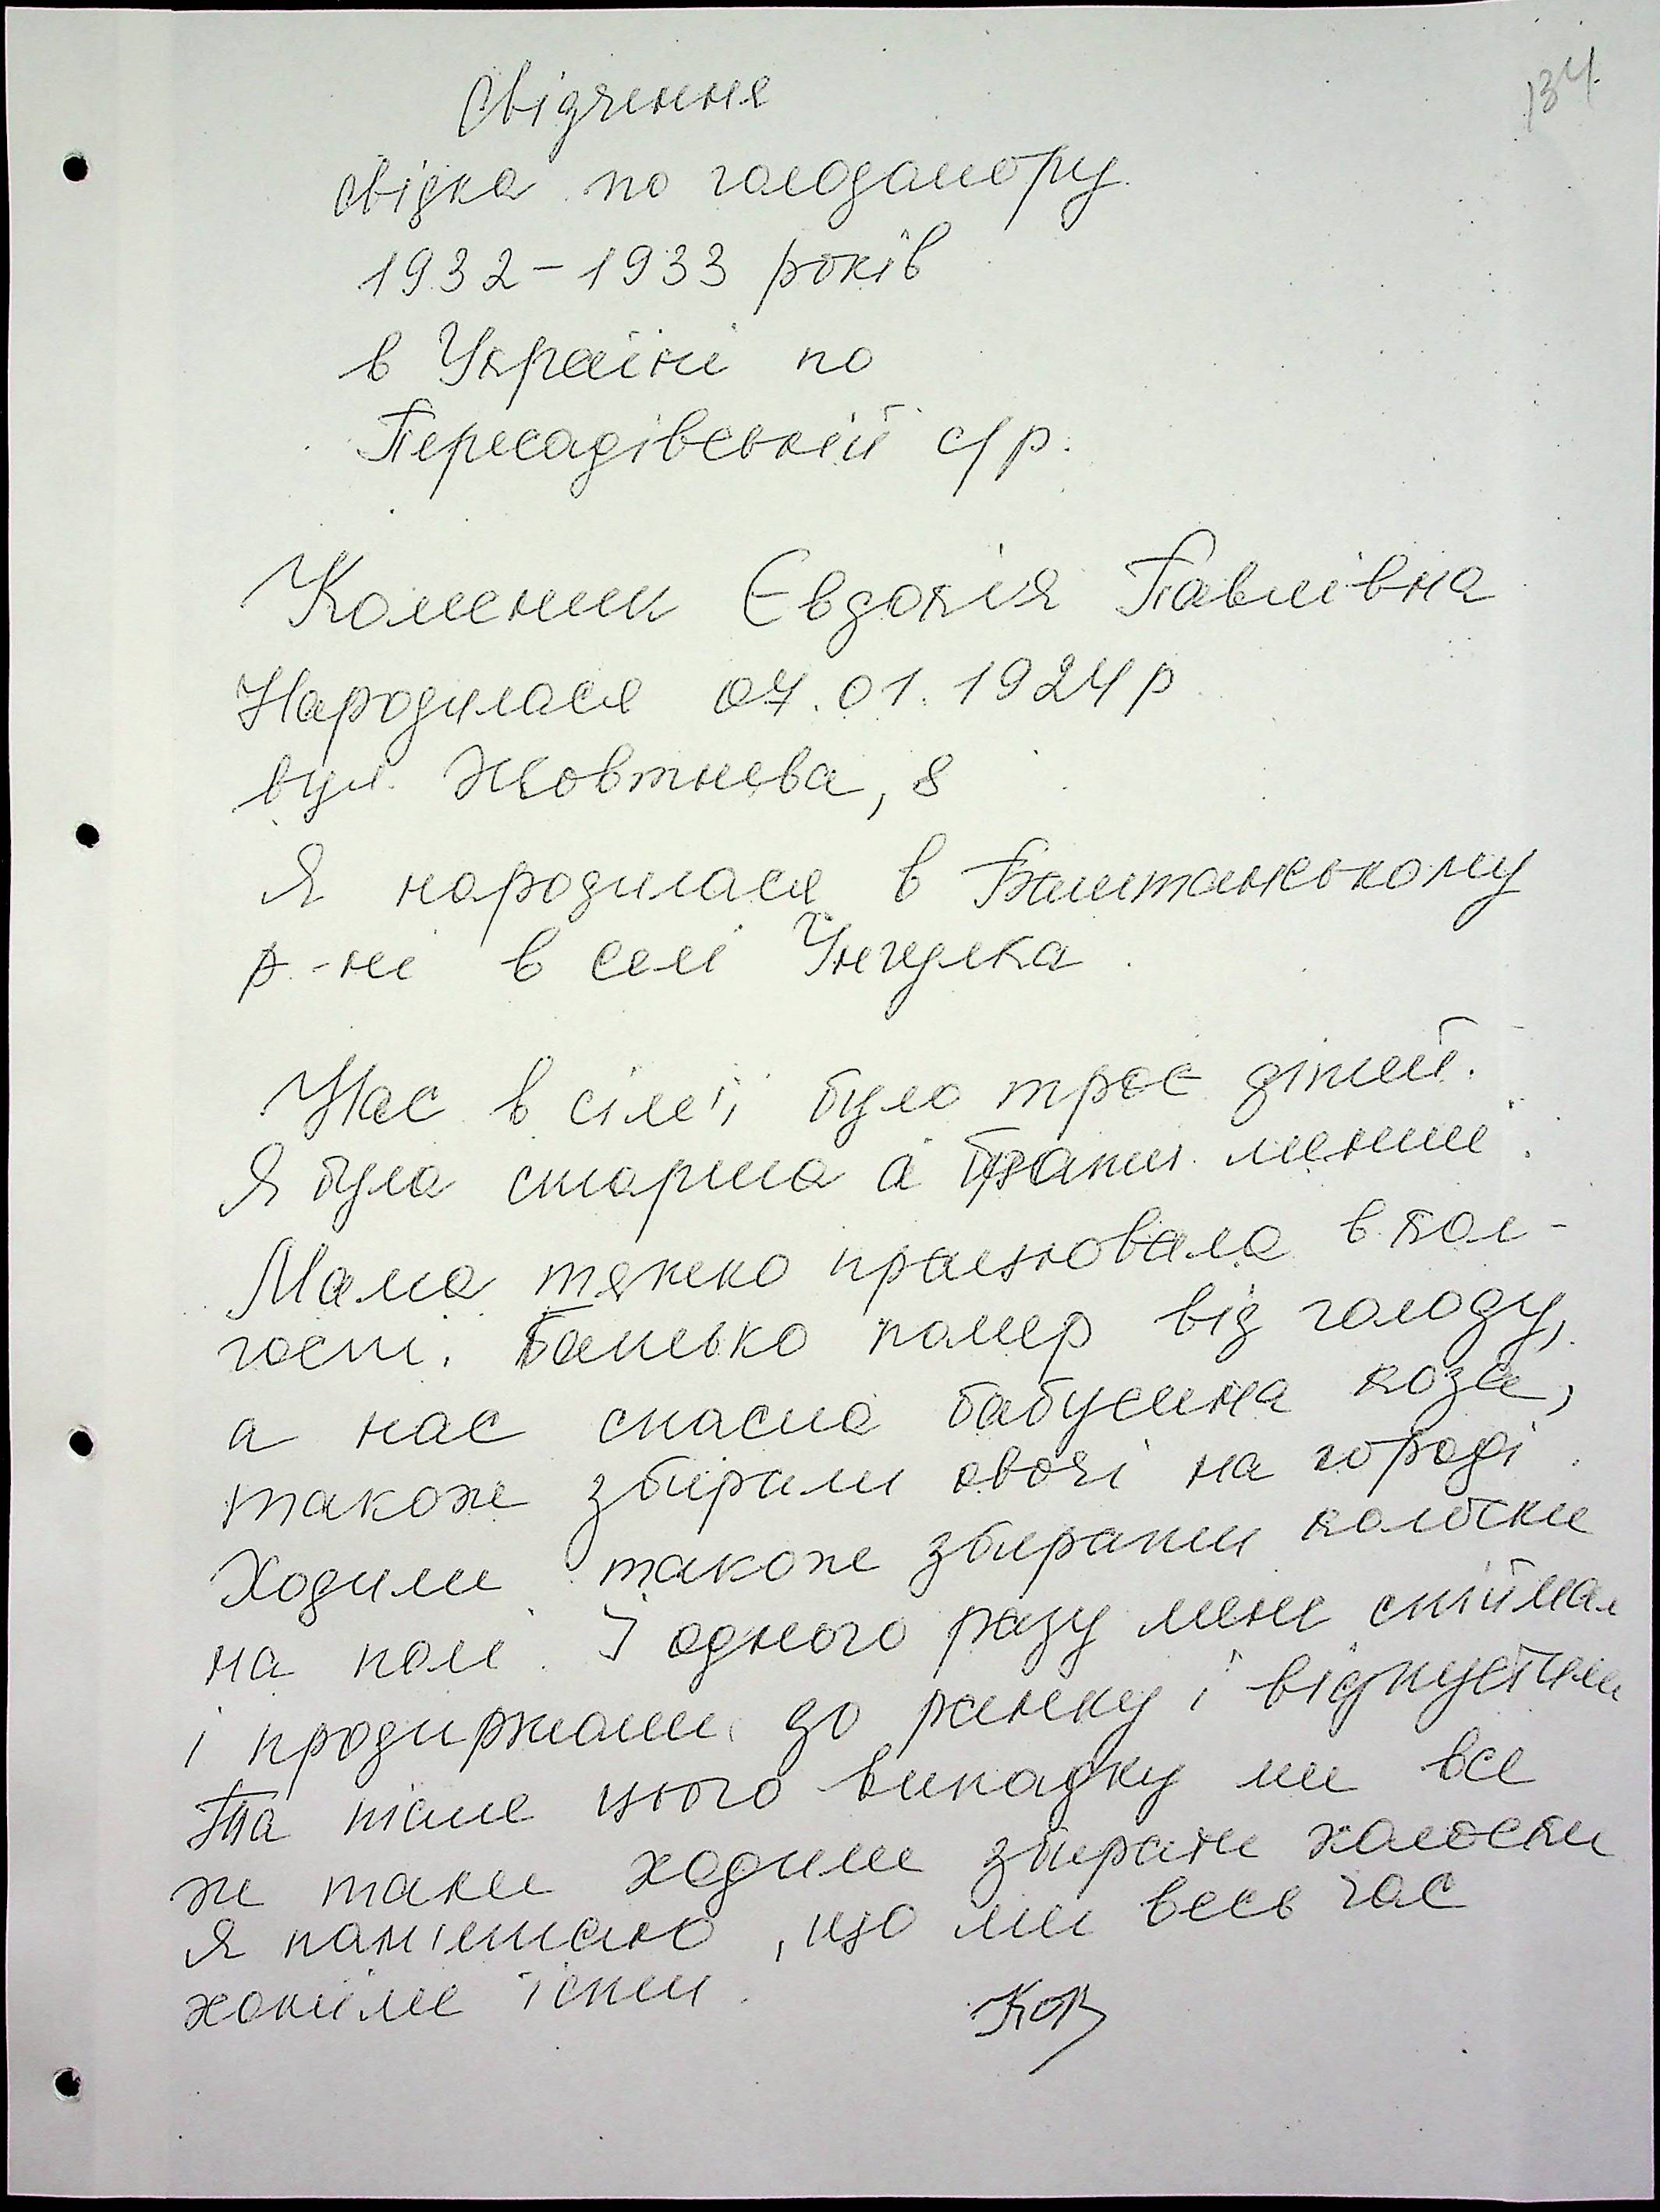 134
Свідчення
свідка по голодомору
1932-1933 років
в Україні по
Пересадівській с/р.
Євдокія Павлівна
Народилася 07.01.1924 р
вул. Жовтнева, 8
Я народилася в Баштанському
р-ні в селі Інгулка.
Нас в сім'ї було троє дітей.
Я була старша а брати менші.
Мама тяжко працювала в кол-
госпі. Батько помер від голоду,
а нас спасла бабусина коза,
також збирали овочі на городі.
Ходили також збирати колоски
на полі. І одного разу мене спіймали
і продиржали до ранку і відпустили
Та після цього випадку ми все
ж таки ходили збирати колоски
Я пам'ятаю, що ми весь час
хотіли їсти.